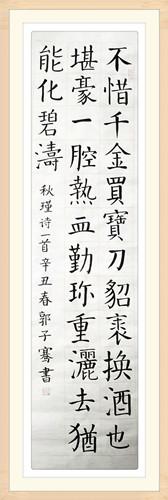 不惜千金買寶刀貂裘換酒也
堪豪一腔熱血勤珍重灑去猶
能化碧濤
秋瑾诗一首辛丑春郭子骞書